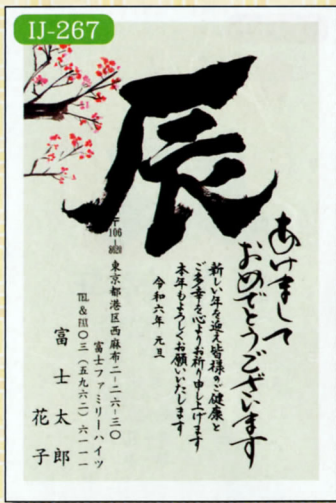 IJ-267
辰
あけまして
おめでとうございます
新しい年を迎え皆様のご健康と
ご多幸を心よりお祈り申し上げます
本年もよろしくお願いいたします
令和六年 元旦
〒106-
東京都港区西麻布二-二六-三〇
富士ファミリーハイツ
TEL & FAX 〇三(五九六二)六一一一
富士太郎
花子